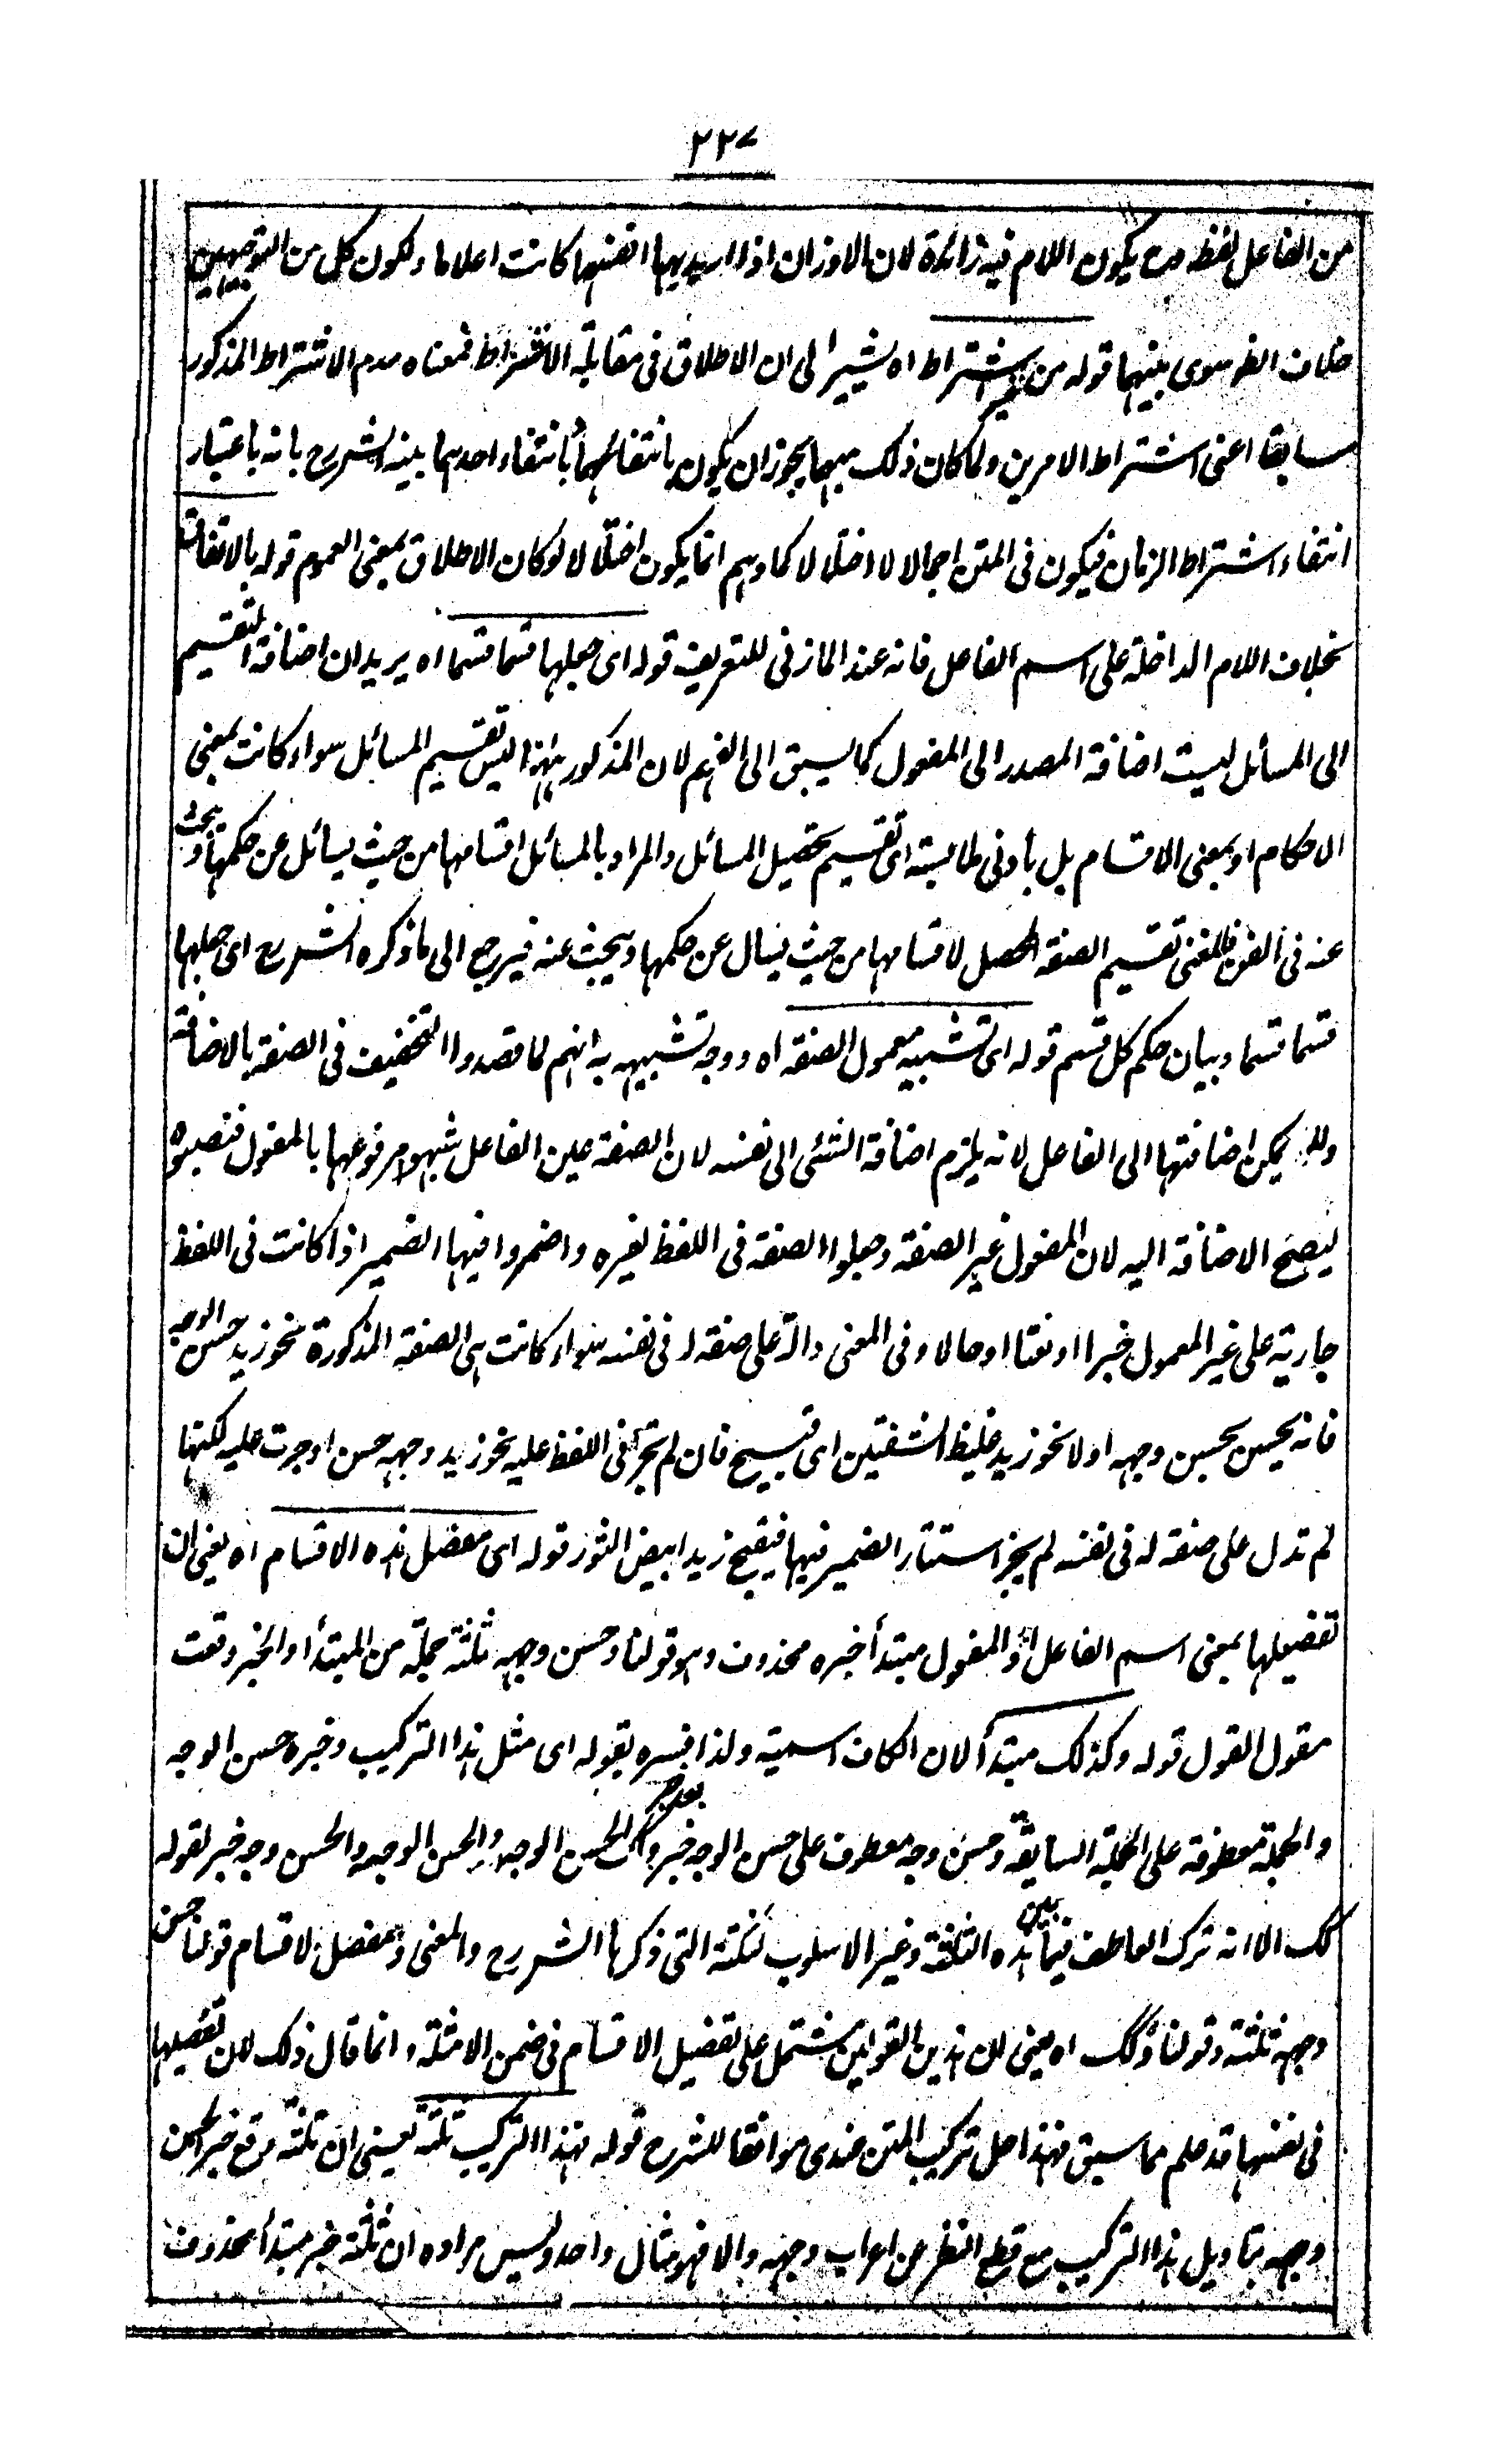 ٢٢٧
من الفاعل لفظه وح يكون اللام فيه زائدة لان الاوزان اذا اريد بها انفسها كانت اعلاما ولكون كل من التوجيهين
خلاف الظ سوى بينهما قوله من غير اشتراط اه يشير الى ان الاطلاق فى مقابلة الاشتراط فمعناه عدم الاشتراط المذكور
سابقا اعنى اشتراط الامرين ولما كان ذلك مبهما يجوز ان يكون بانتفائهما او بانتفاء احدهما بينه الشرح بانه باعتبار
انتفاء اشتراط الزمان فيكون فى المتن اجمالا لا اختلالا كما وهم انما يكون اختلالا لو كان الاطلاق بمعنى العموم قوله بالاتفاق
بخلاف اللام الداخلة على اسم الفاعل فانه عند المازنى للتعريف قوله اى جعلها قسما قسما اه يريد ان اضافة التقسيم
الى المسائل ليست اضافة المصدر الى المفعول كما يسبق الى الفهم لان المذكور ههنا ليس تقسيم المسائل سواء كانت بمعنى
الاحكام او بمعنى الاقسام بل بأدنى ملابسة اى تقسيم تحصيل المسائل والمراد بالمسائل اقسامها من حيث يسائل عن حكمها ويبحث
عنه فى الفن فالمعنى تقسيم الصفة المحصل لاقسامها من حيث يسال عن حكمها ويبحث عنه فيرجع الى ما ذكره الشرح اى جعلها
قسما قسما وبيان حكم كل قسم قوله اى تشبيه معمول الصفة اه ووجه تشبيهه به انهم لما قصدوا التخفيف فى الصفة بالاضافة
ولم يمكن اضافتها الى الفاعل لانه يلزم اضافة الشئى الى نفسه لان الصفة عين الفاعل شبهوا مرفوعها بالمفعول فنصبوه
ليصح الاضافة اليه لان المفعول غير الصفة وجعلوا الصفة فى اللفظ لغيره واضمروا فيها الضمير اذا كانت فى اللفظ
جارية على غير المعمول خبرا او نعتا او حالا وفى المعنى دالة على صفة له فى نفسه سواء كانت هى الصفة المذكورة نحو زيد حسن الوجه
فانه يحسن بحسن وجهه اولا نحو زيد غليظ الشفتين اى قبيح فان لم تجر فى اللفظ عليه نحو زيد وجهه حسن او جرت عليه لكنها
لم تدل على صفة له فى نفسه لم يجز استتار الضمير فيها فيقبح زيد ابيض الثور قوله اى مفصل هذه الاقسام اه يعنى ان
تفصيلها بمعنى اسم الفاعل او المفعول مبتدأ خبره محذوف وهو قولنا وحسن وجهه ثلثة جملة من المبتدأ والخبر وقعت
مقول القول قوله وكذلك مبتدأ لان الكاف اسمية ولذا فسره بقوله اى مثل هذا التركيب وخبره حسن الوجه
والجملة معطوفة على الجملة السابقة وحسن وجه معطوف على حسن الوجه خبر بعد خبر والحسن الوجه والحسن الوجه والحسن وجه خبر لقوله
كك الا انه ترك العاطف فيما بين هذه الثلثة وغير الاسلوب لنكتة التى ذكرها الشرح والمعنى ومفصل لاقسام قولنا حسن
وجهه ثلثة وقولنا وكك اه يعنى ان هذين القولين مشتمل على تفصيل الاقسام فى ضمن الامثلة وانما قال ذلك لان تفصيلها
فى نفسها قد علم مما سبق فهذا حل تركيب المتن عندى موافقا للشرح قوله فهذا التركيب ثلثة يعنى ان ثلثة وقع خبر الحسن
وجهه بتاويل هذا التركيب مع قطع النظر عن اعراب وجهه والا فهو مثال واحد وليس مراده ان ثلثة خبر مبتدأ محذوف